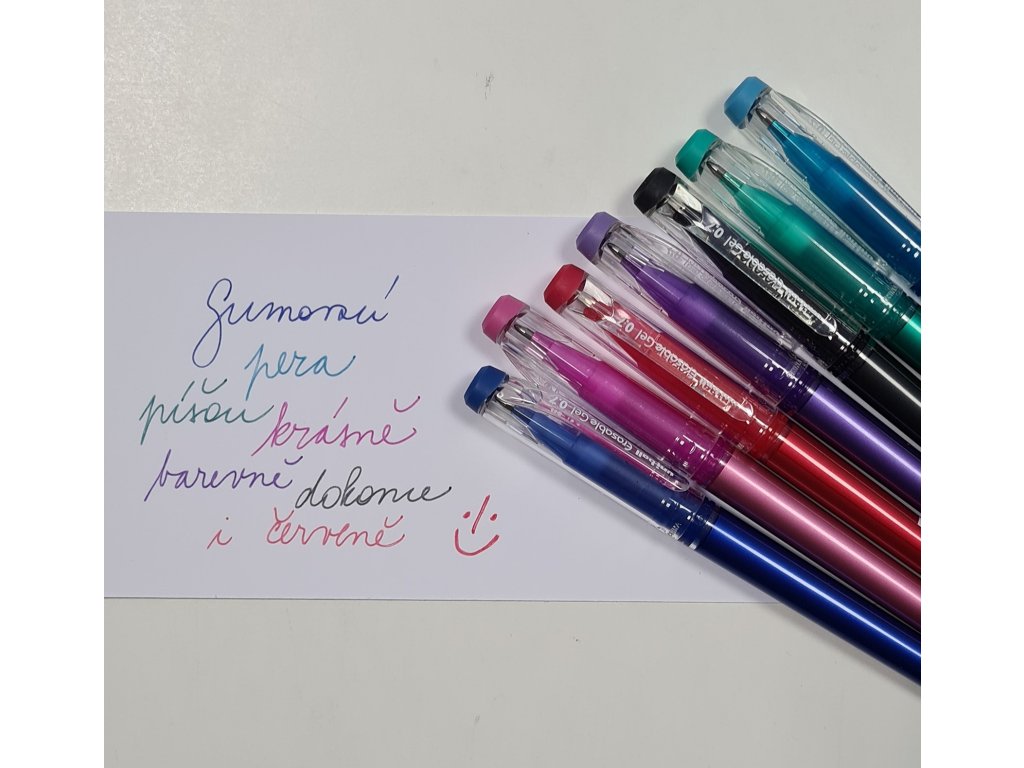 Gumovací
pera
píšou krásně
barevně dokonce
i červeně
Erasable Gel 0.7
Erasable Gel 0.7
uni-ball Erasable Gel 0.7